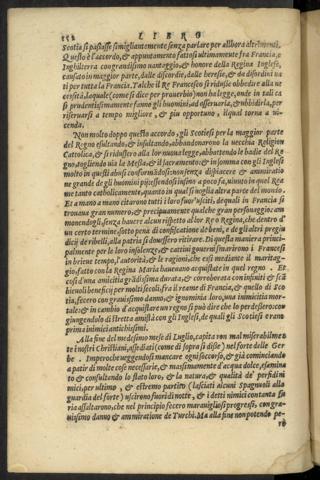 152 LIBRO
Scotia si passasse simigliantemente senza parlare per allhora altrimenti.
Questo è l'accordo, & appuntamento fattosi ultimamente fra Francia, e
Inghilterra con grandissimo vantaggio, & honore della Regina Inglese,
causato in maggior parte, dalle discordie, dalle heresie, & da disordini va
ti per tutta la Francia. Talche il Re Francesco si ridusse obbedire alla ne
cessità, laquale (come si dice per proverbio) non ha legge, onde in tali ca
si prudentissimamente fanno gli huomini, ad osservarla, & ubbidirla, per
riserbarsi a tempo migliore, & piu opportuno, ilqual torna a vi-
cenda.
Non molto doppo questo accordo, gli Scotiesi per la maggior parte
del Regno esultando, & insultando, abbandonarono la vecchia Religion
Catholica, & si ridussero alla lor nuova legge, abbattendo le badie del Re
gno, togliendo via la Messa, & il sacramento & in somma con gli Inglesi
molto in questi abusi conformadosi; non senza dispiacere & ammiratio
ne grande de gli huomini pij; essendosi insino a poco fa, vivuto in quel Re
me tanto catholicamente, quanto in qual si voglia altra parte del mondo.
Et a mano a mano citarono tutti i loro fuor'usciti, dequali in Francia si
trovava gran numero, & precipuamente qualche gran personaggio; am
monendogli, senza havere alcun rispetto al lor Re o Regina, che dentro d'
un certo termine, sotto pena di confiscatione de beni, e de gli altri pregiu
dicij di ribelli, alla patria si dovessero ritirare. Et in quella maniera princi-
palmente per le loro insolenze, & cattivi governi smarirono i Francesi
in brieve tempo, l'autorità, & le ragioni, che essi mediante il marita-
gio, fatto con la Regina Maria havevano acquistate in quel regno. Et
cosi d'una amicitia grādissima durata, & corroborata con infiniti & scā
bievoli beneficij per molti secoli, fra il reame di Francia, & quello di Sco
tia, fecero con gravissimo danno, & ignominia loro, una inimicitia mor-
tale: & in cambio d'acquistare un regno si può dire che lo perdessero: con
giungendolo di stretta amistà con gli Inglesi, de quali gli Scotiesi erano
prima inimici antichissimi.
Alla fine del medesimo mese di Luglio, capitaron mal miserabilmen
te i nostri Christiani, assediati (come di sopra si disse) nel forte delle Ger
be. Imperoche veggendosi mancare ogni soccorso, & già cominciando
a patir di molte cose necessarie, & massimamente d'acqua dolce, esamina
to & consultando lo stato loro, & la natura, & qualità de' perfidi ni
mici, per ultimo, & estremo partito (lasciati alcuni Spagnuoli alla
guardia del forte) uscirono fuori di notte, & i detti nimici con tanta fu
ria assaltarono, che nel principio fecero maraviglioso progresso, con gra-
vissimo danno & ammiratione de Turchi. Ma alla fine non potendo pe-
rò